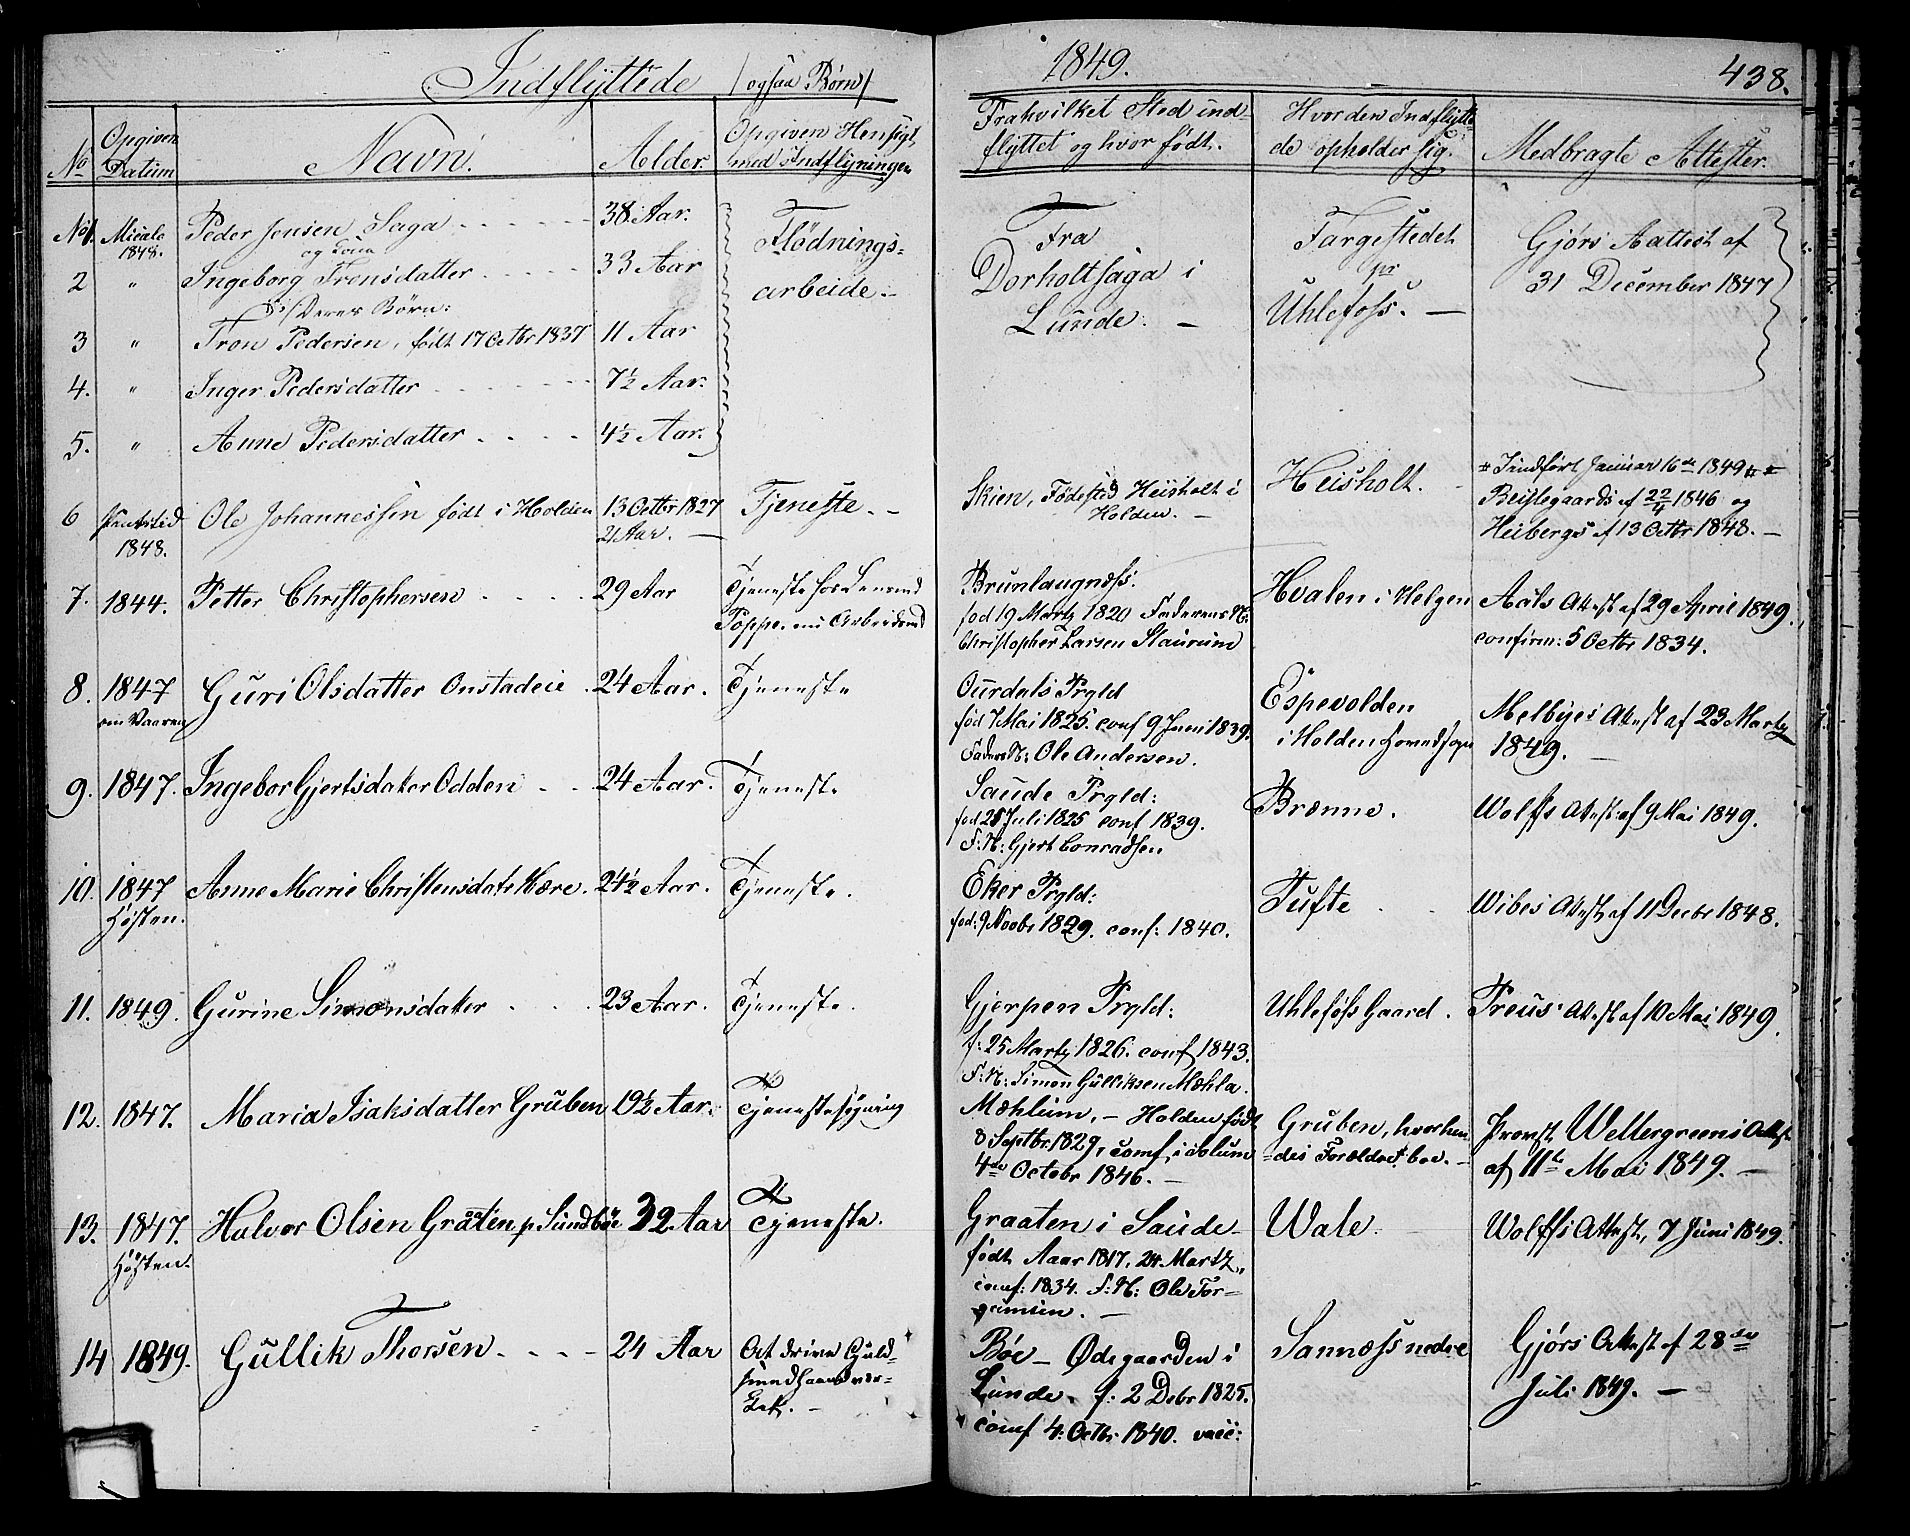 Indflyttede /ogsaa Børn/ 1849. 438.
No Opgiven Datum Navn. Alder. Opgiven Hensigt med Indflytningen Fra hvilket Sted indflyttet og hvor født. Hvor den Indflyttede opholder sig. Medbragte Attester.
No 1. Micali 1848. Peder Jensen Saga 38 Aar. Flødnings-
og Kone
2 " Ingeborg Tronsdatter 33 Aar arbeide.
Fra Dorholtsaga i Lunde. Fargestedet pr Uhlefoss. Gjørs Aattest af 31 December 1847
Deres Børn:
3 " Tron Pedersen, født 17 Octbr 1837 11 Aar
4. " Inger Pedersdatter 7½ Aar.
5. " Anne Pedersdatter 4½ Aar.
6 1848. Ole Johannessen født i Holden 13 Octbr 1827
21 Aar. Tjeneste. Skien, Fødested Heisholt i
Holden. Heisholt. Indført Januar 16de 1849
af 22/4 1846 og
Heibergs af 13 Octbr 1848.
7. 1844. Petter Christophersen 29 Aar Tjeneste hos Lensmd
Brunlaugnæss.
fød 19 Martz 1820 Faderens N:
Christopher Larsen Staurum Hvalen i Helgen Aals Attest af 29 April 1849.
confirm: 5 Octbr 1834.
8. 1847 om Vaaren Guri Olsdatter Onstadeie 24 Aar. Tjeneste
Ourdals Prgld
fød 7 Mai 1825. conf 9 Juni 1839.
Faders N: Ole Andersen. Espevolden
i Holden Hovedsogn Melbyes Attest af 23 Martz
1849.
9. 1847. Ingebor Gjertsdater Odden 24 Aar. Tjeneste
Saude Prgld:
fød 25 Juli 1825 conf 1839.
F: N: Gjert Conradsen Brenne. Wolffs Attest af 9 Mai 1849.
10. 1847 Høsten. Anne Marie Christensdater Kære. 24½ Aar. Tjeneste.
Eker Prgld:
fød: 9 Novbr 1829. conf: 1840. Tufte Wibes Attest af 11 Decbr 1848.
11. 1849. Gurine Simonsdater 23 Aar. Tjeneste.
Gjerpen Prgld:
f: 25 Martz 1826. conf 1843.
F: N: Simon Gulliksen Mæhla. Uhlefoss Gaard. Preus' Attest af 10 Mai 1849.
12. 1847. Maria Isaksdatter Gruben 19½ Aar. Tjenestesøgning
Mæhlum, – Holden født
8 Septbr. 1829, comf. i Solum
4de Octobr 1846. Gruben, hvor hendes Forældre boe. Provst Wettergreens Attest
af 11te Mai 1849.
13. 1847. Høsten. Halvor Olsen Graaten p. Sundbøe 32 Aar Tjeneste.
Graaten i Saude
født Aaar 1817, 24. Martz,
comf: 1834. F: N: Ole Tor-
grimsen. Wale. Wolffs Attest, 7 Juni 1849.
14 1849. Gullik Thorsen. 24 Aar At drive Guld-
smedhaandver-
Bøe – Ødegaarden i
Lunde. f: 2 Debr 1825.
comf 4. Octbr 1840. vacc: Sannæss nedre Gjørs Attest af 28de
Juli 1849.